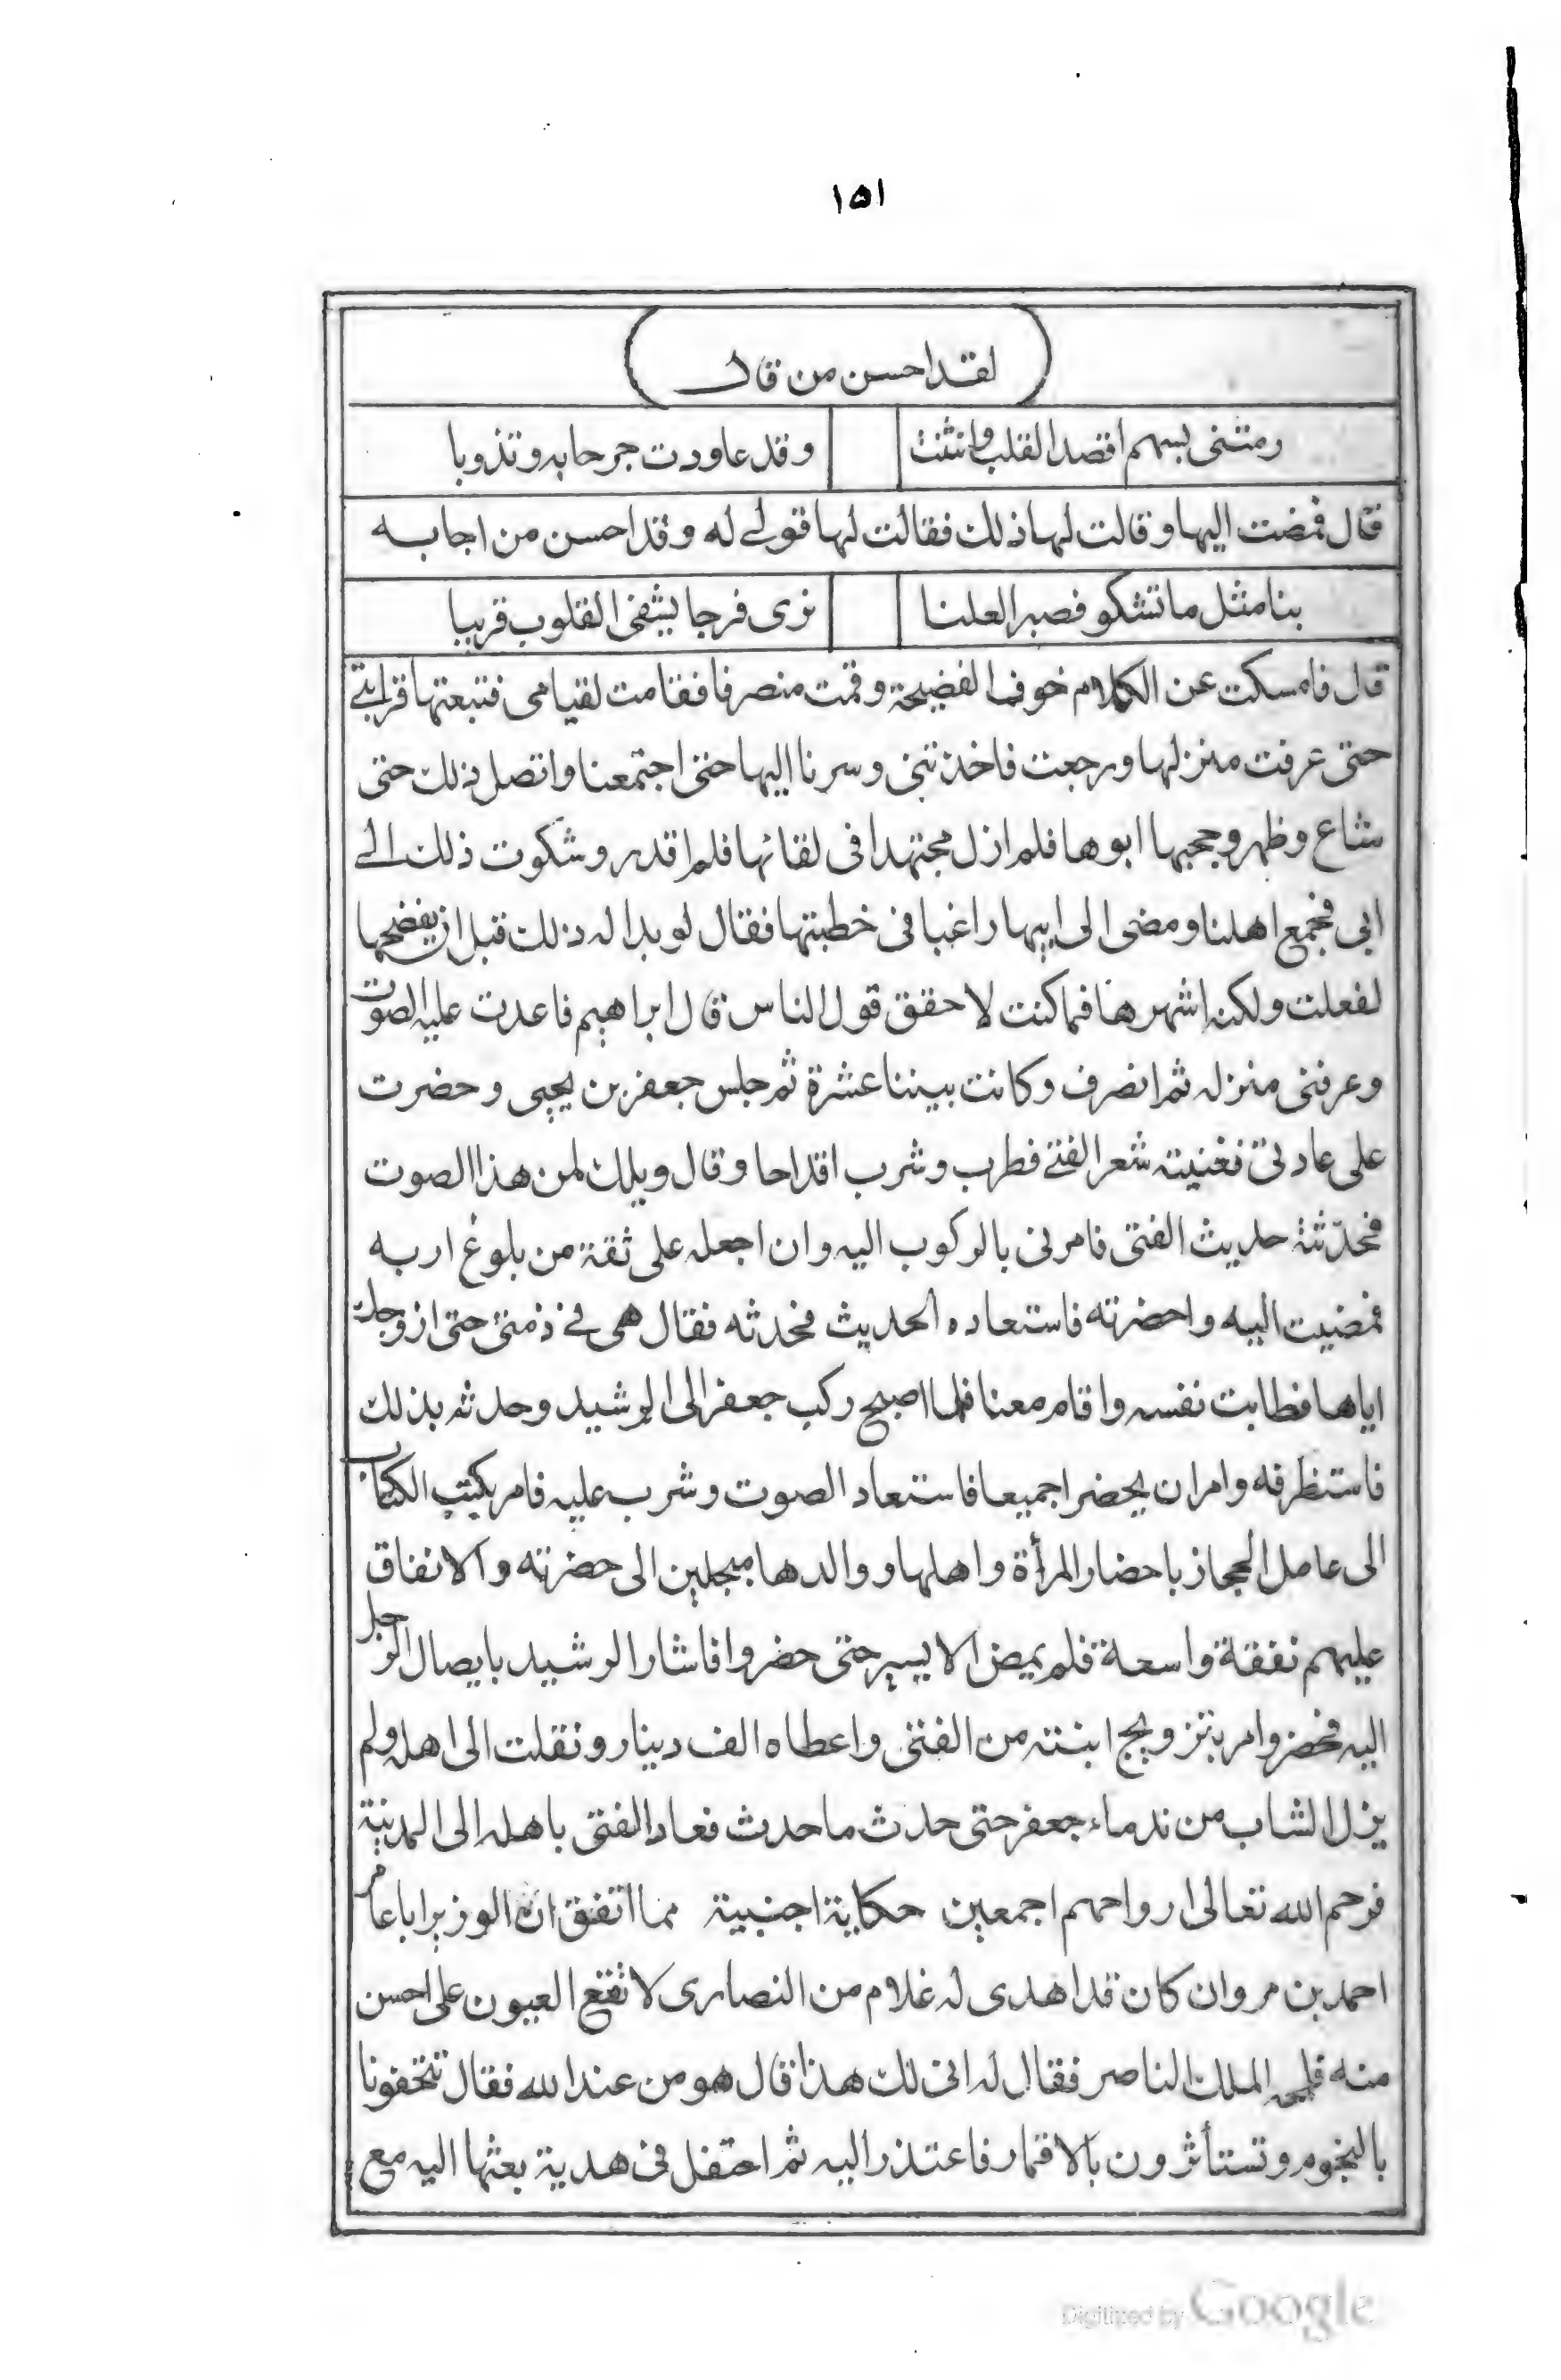 ١٥١
لقد احسن من قال
رمتنى بسهم اقصد القلب وانثنت
وقد عاودت جرحا به وتذوبا
قال فمضت اليها وقالت لها ذلك فقالت لها قولے له وقد احسن من اجابه
بنا مثل ما تشكو فصبرا لعلنا
نرى فرجا يشفى القلوب قريبا
قال فامسكت عن الكلام خوف الفضيحة وقمت منصرفا فقامت لقيامى فتبعتها قرابتے
حتى عرفت منزلها ورجعت فاخذتنى وسرنا اليها حتى اجتمعنا واتصل ذلك حتى
شاع وظهر وحجبها ابوها فلم ازل مجتهدا فى لقائها فلم اقدر وشكوت ذلك الے
ابى فجمع اهلنا ومضى الى ابيها راغبا فى خطبتها فقال لو بدا له ذلك قبل ان يفضحها
لفعلت ولكنه اشهرها فما كنت لاحقق قول الناس قال ابراهيم فاعدت عليه الصوت
وعرفنى منزله ثم انصرف وكانت بيننا عشرة ثم جلس جعفر بن يحيى وحضرت
على عادتى فغنيته شعر الفتے فطرب وشرب اقداحا وقال ويلك لمن هذا الصوت
فحدّثته حديث الفتى فامرنى بالركوب اليه وان اجعله على ثقة من بلوغ اربه
فمضيت اليه واحضرته فاستعاده الحديث فحدثه فقال هى فے ذمتى حتى ازوجك
اياها فطابت نفسه واقام معنا فلما اصبح ركب جعفر الى الرشيد وحدثه بذلك
فاستظرفه وامر ان يحضرا جميعا فاستعاد الصوت وشرب عليه فامر بكتب الكتاب
الى عامل الحجاز باحضار المرأة واهلها ووالدها مبجلين الى حضرته والانفاق
عليهم نفقة واسعة فلم يمض الا يسير حتى حضروا فاشار الرشيد بايصال الرجل
اليه فحضر وامر بتزويج ابنته من الفتى واعطاه الف دينار ونقلت الى اهله ولم
يزل الشاب من ندماء جعفر حتى حدث ما حدث فعاد الفتى باهله الى المدينة
فرحم الله تعالى ارواحهم اجمعين حكاية اجنبية مما اتفق ان الوزير ابا عامر
احمد بن مروان كان قد اهدى له غلام من النصارى لا تقع العيون على احسن
منه فلمحه الملك الناصر فقال له انى لك هذا قال هو من عند الله فقال تتحفونا
بالنجوم وتستأثرون بالاقمار فاعتذر اليه ثم احتفل فى هدية بعثها اليه مع
Digitized by Google